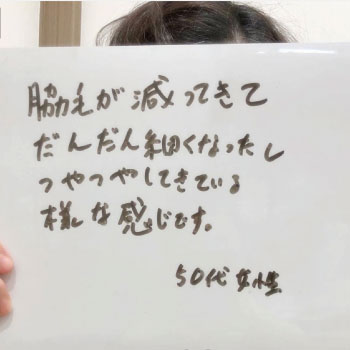 脇毛が減ってきて
だんだん細くなったし
つやつやしてきている
様な感じです。
50代女性